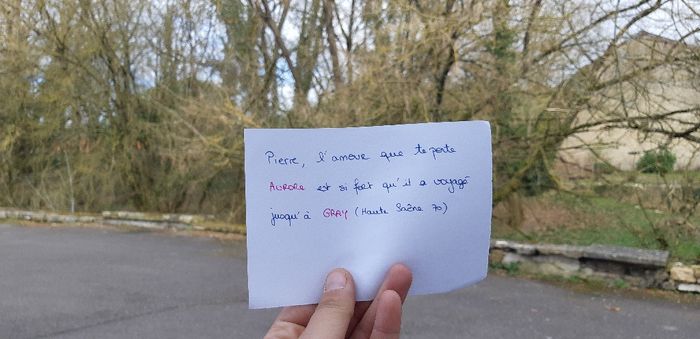 Pierre, l'amour que te porte
AURORE est si fort qu'il a voyagé
jusqu'à GRAY (Haute Saône 70)